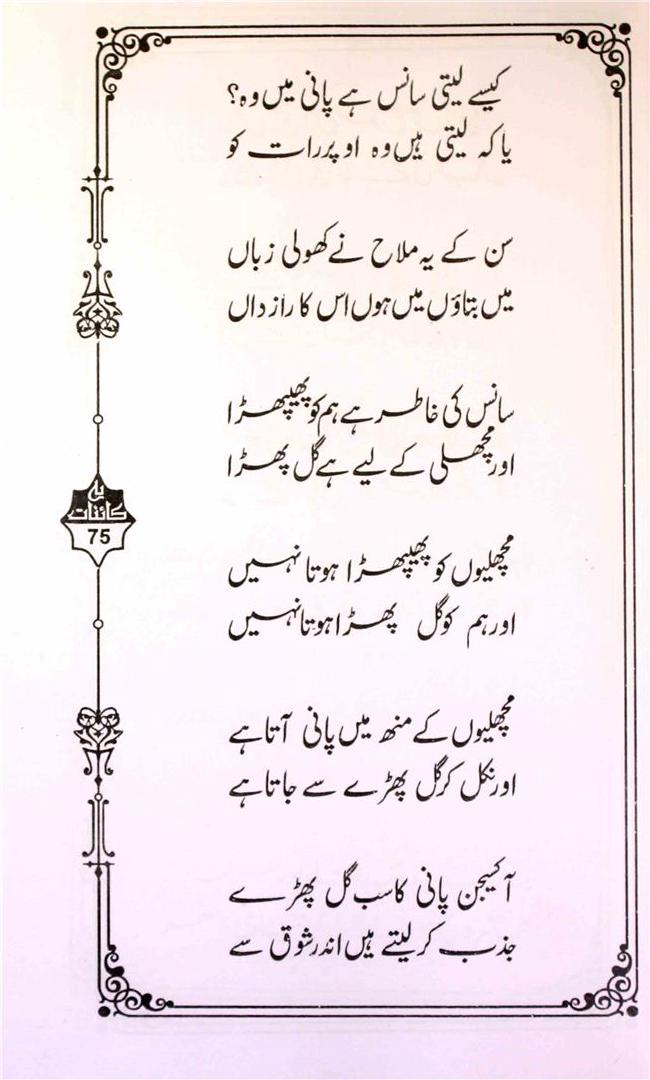 کیسے لیتی سانس ہے پانی میں وہ؟
یا کہ لیتی ہیں وہ اوپر رات کو
سن کے یہ ملاح نے کھولی زباں
میں بتاؤں میں ہوں اس کا راز داں
سانس کی خاطر ہے ہم کو پھیپھڑا
اور مچھلی کے لیے ہے گل پھڑا
مچھلیوں کو پھیپھڑا ہوتا نہیں
اور ہم کو گل پھڑا ہوتا نہیں
مچھلیوں کے منھ میں پانی آتا ہے
اور نکل کر گل پھڑے سے جاتا ہے
آکسیجن پانی کا سب گل پھڑے
جذب کر لیتے ہیں اندر شوق سے
یہ کائنات
75